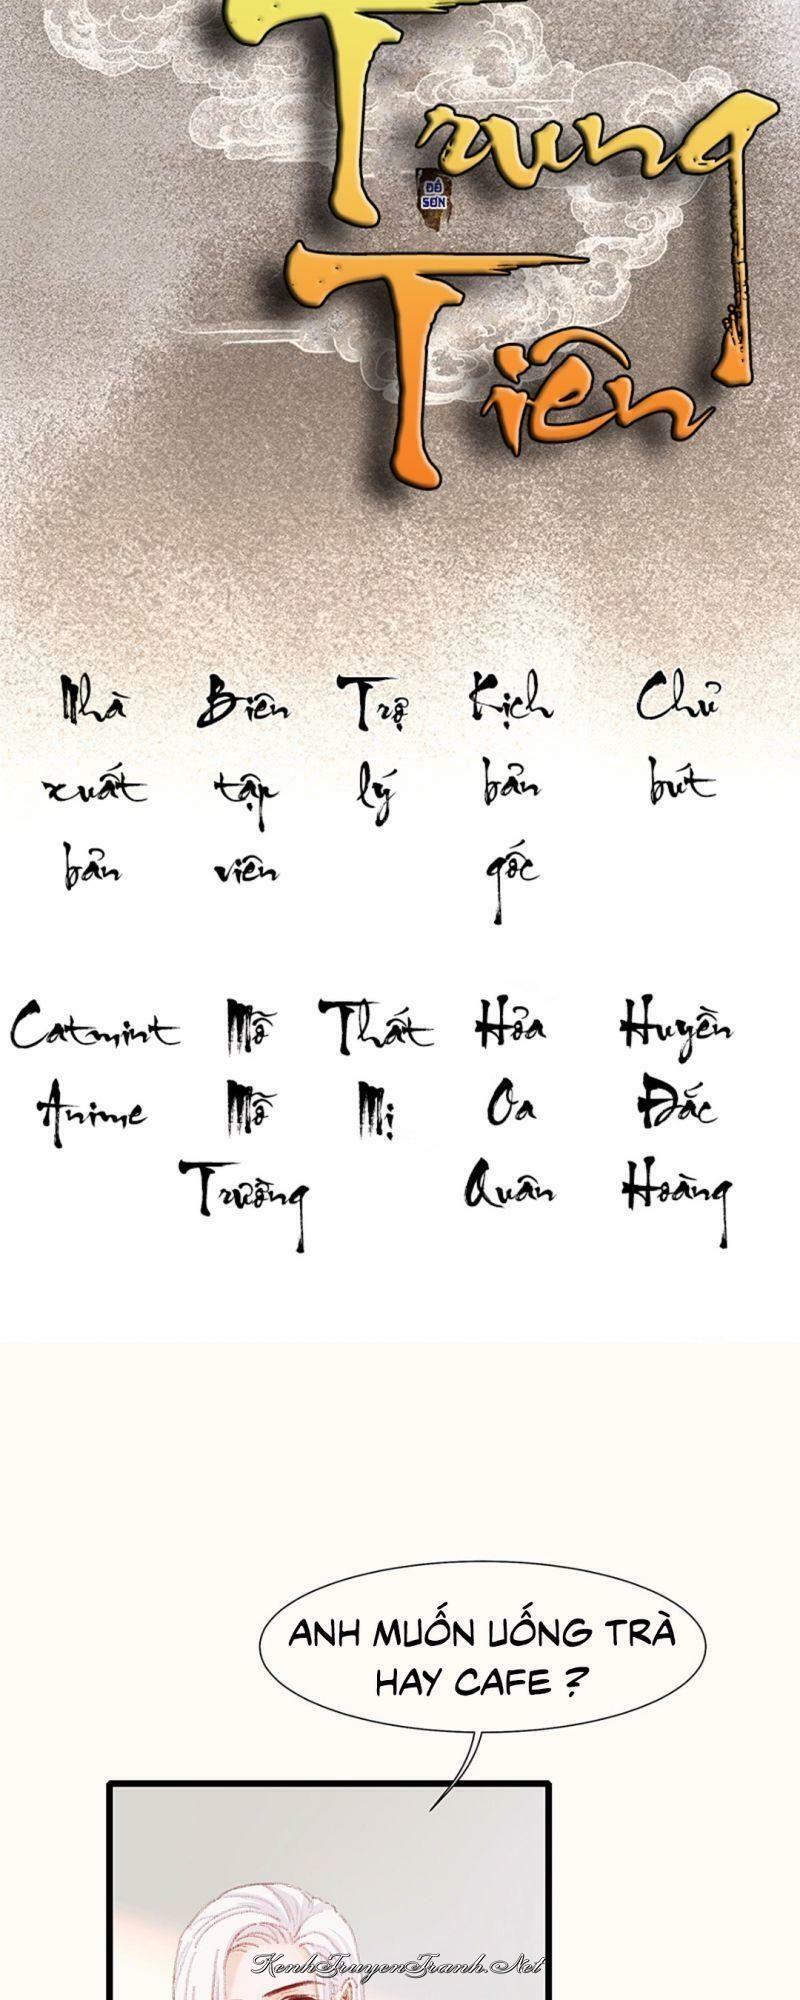 Trung
ĐẾ
SƠN
Tiên
Nhà Biên Trợ Kịch Chủ
xuất tập lý bản bút
bản viên gốc
Catmint Mỗ Thất Hỏa Huyền
Anime Mỗ Mị Oa Đắc
Trường Quân Hoàng
ANH MUỐN UỐNG TRÀ
HAY CAFE ?
KenhTruyenTranh.Net